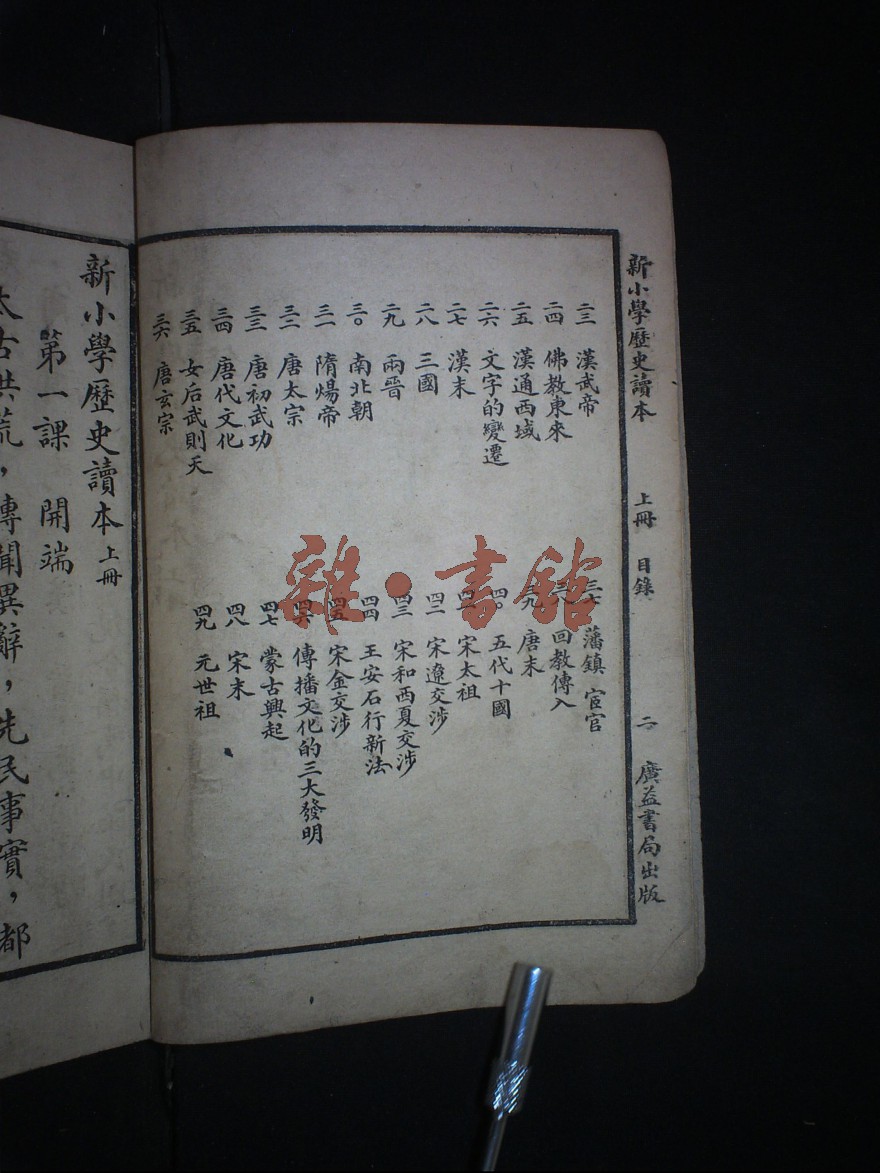 新小學歷史讀本　上冊　目錄　二　廣益書局出版
二三　漢武帝
二四　佛教東來
二五　漢通西域
二六　文字的變遷
二七　漢末
二八　三國
二九　兩晉
三〇　南北朝
三一　隋煬帝
三二　唐太宗
三三　唐初武功
三四　唐代文化
三五　女后武則天
三六　唐玄宗
三七　藩鎮　宦官
三八　回教傳入
三九　唐末
四〇　五代十國
四一　宋太祖
四二　宋遼交涉
四三　宋和西夏交涉
四四　王安石行新法
四五　宋金交涉
四六　傳播文化的三大發明
四七　蒙古興起
四八　宋末
四九　元世祖
雜·書館
新小學歷史讀本　上冊
第一課　開端
太古洪荒，傳聞異辭，先民事實，都